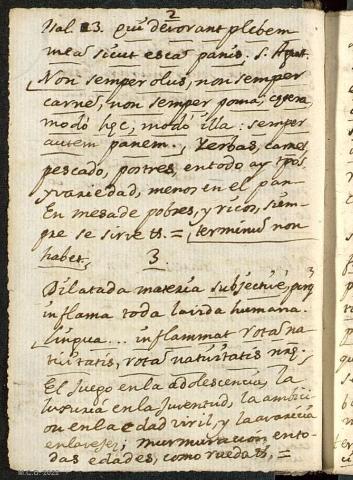 2
Psal. 13. qui devorant plebem
meã sicut escã panis. S. Agust.
Non semper olus, non semper
carnes, non semper poma, cetera,
modò hęc, modò illa: semper
autem panem., Yerbas, carnes,
pescado, postres, en todo ay tpõs
y variedad, menos en el pan
En mesa de pobres, y ricos, siem-
pre se sirve &. = terminũ non
habet,
3.
Dilatada materia subjectivè, porq
inflama toda la vida humana.
Lingua... inflammat rotã na-
tivitatis, rotã nativitatis nrę.
El juego en la adolescencia, la
luxuria en la juventud, la ambici-
on en la edad viril, y la avaricia
en la vejez; murmuración en to-
das edades, como rueda &, =